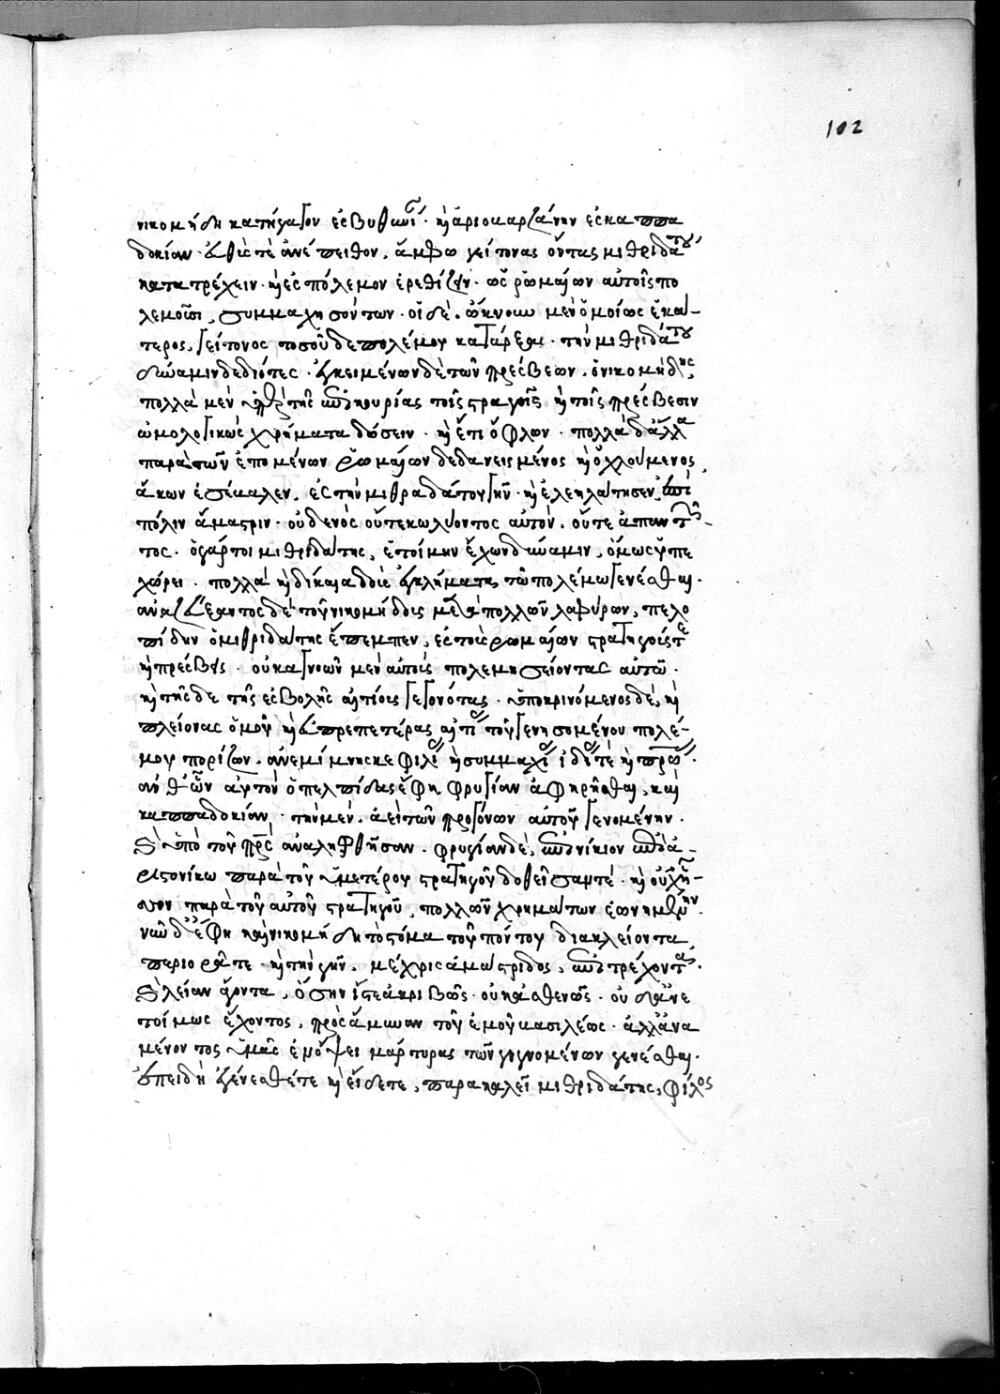 102
νικομήδη κατήγαγον ἐς βυθινίαν· καὶ ἀριοβαρζάνην ἐς καππα
δοκίαν· εὐθύς τὲ ἀνέπειθον, ἄμφω γείτονας ὄντας μιθριδάτου
κατατρέχειν· καὶ ἐς πόλεμον ἐρεθίζειν· ὡς ῥωμαίων αὐτοῖς πο
λεμοῦσι, συμμαχησόντων· οἱ δὲ, ὤκνουν μὲν ὁμοίως ἑκά-
τερος, γείτονος τοσοῦδε πολέμου κατάρξαι· τὴν μιθριδάτου
δύναμιν δεδιότες· ἐγκειμένων δὲ τῶν πρέσβεων, ὁ νικομήδης
πολλὰ μὲν ὑπὲρ τῆς ἐπικουρίας τοῖς στρατηγοῖς καὶ τοῖς πρέσβεσιν
ὡμολογικὼς χρήματα δώσειν· καὶ ἔτι ὀφλων· πολλὰ δ' ἄλλα
παρὰ τῶν ἑπομένων ῥωμαίων δεδανεισμένος καὶ ὀχλούμενος,
ἄκων ἐσέβαλεν, ἐς τὴν μιθραδάτου γῆν· καὶ ἐλεηλάτησεν ἐπὶ
πόλιν ἄμαστριν· οὐδενὸς οὔτε κωλύοντος αὐτὸν, οὔτε ἀπαντῶν-
τος· ὁ γάρ τοι μιθριδάτης, ἑτοίμην ἔχων δύναμιν, ὅμως ὑπε
χώρει· πολλὰ καὶ δίκαια διδοὺς ἐγκλήματα τῶ πολέμω γενέσθαι·
ἀναζεύξαντος δὲ τοῦ νικομήδους μετὰ πολλῶν λαφύρων, πελο
πίδην ὁ μιθριδάτης ἔπεμπεν, ἐς τοὺς ῥωμαίων στρατηγούς τε
καὶ πρέσβεις· οὐκ ἀγνοῶν μὲν αὐτοὺς πολεμησείοντας αὐτῶ·
καὶ τῆσδε τῆς ἐσβολῆς αἰτίους γεγονότας· ὑποκρινόμενος δέ, καὶ
πλείονας ὁμοῦ καὶ εὐπρεπετέρας αἰτίας τοῦ γενησομένου πολέ-
μου πορίζων, ἀνεμίμνησκε φιλίας καὶ συμμαχίας ἰδίας τὲ καὶ πατρώας·
ἀνθ' ὧν αὐτὸν ὁ πελοπίδας ἔφη φρυγίαν ἀφηρῆσθαι, καὶ
καππαδοκίαν, τὴν μὲν, ἀεὶ τῶν προγόνων αὐτοῦ γενομένην·
καὶ ὑπὸ τοῦ πατρὸς ἀναληφθεῖσαν· φρυγίαν δὲ, ἐπινίκιον ἐπὶ ἀ
ριστονίκω παρὰ τοῦ ὑμετέρου στρατηγοῦ δοθεῖσαν τέ· καὶ οὐχ ἧσ-
σον παρὰ τοῦ αὐτοῦ στρατηγοῦ, πολλῶν χρημάτων ἐωνημένην·
νῦν δ' ἔφη καὶ νικομήδη τὸ στόμα τοῦ πόντου διακλείοντα,
περιορᾶτε· καὶ τὴν γῆν, μέχρις ἀμάστριδος, ἐπιτρέχοντα·
καὶ λείαν ἄγοντα, ὅσην ἴστε ἀκριβῶς· οὐκ ἀσθενῶς· οὐδ' ἀνε
τοίμως ἔχοντος, πρὸς ἄμυναν τοῦ ἐμοῦ βασιλέως· ἀλλ' ἀνα
μένοντος ὑμᾶς ἐν ὄψει μάρτυρας τῶν γιγνομένων γενέσθαι·
ἐπειδὴ ἐγένεσθέ τε καὶ εἴδετε, παρακαλεῖ μιθριδάτης, φίλος